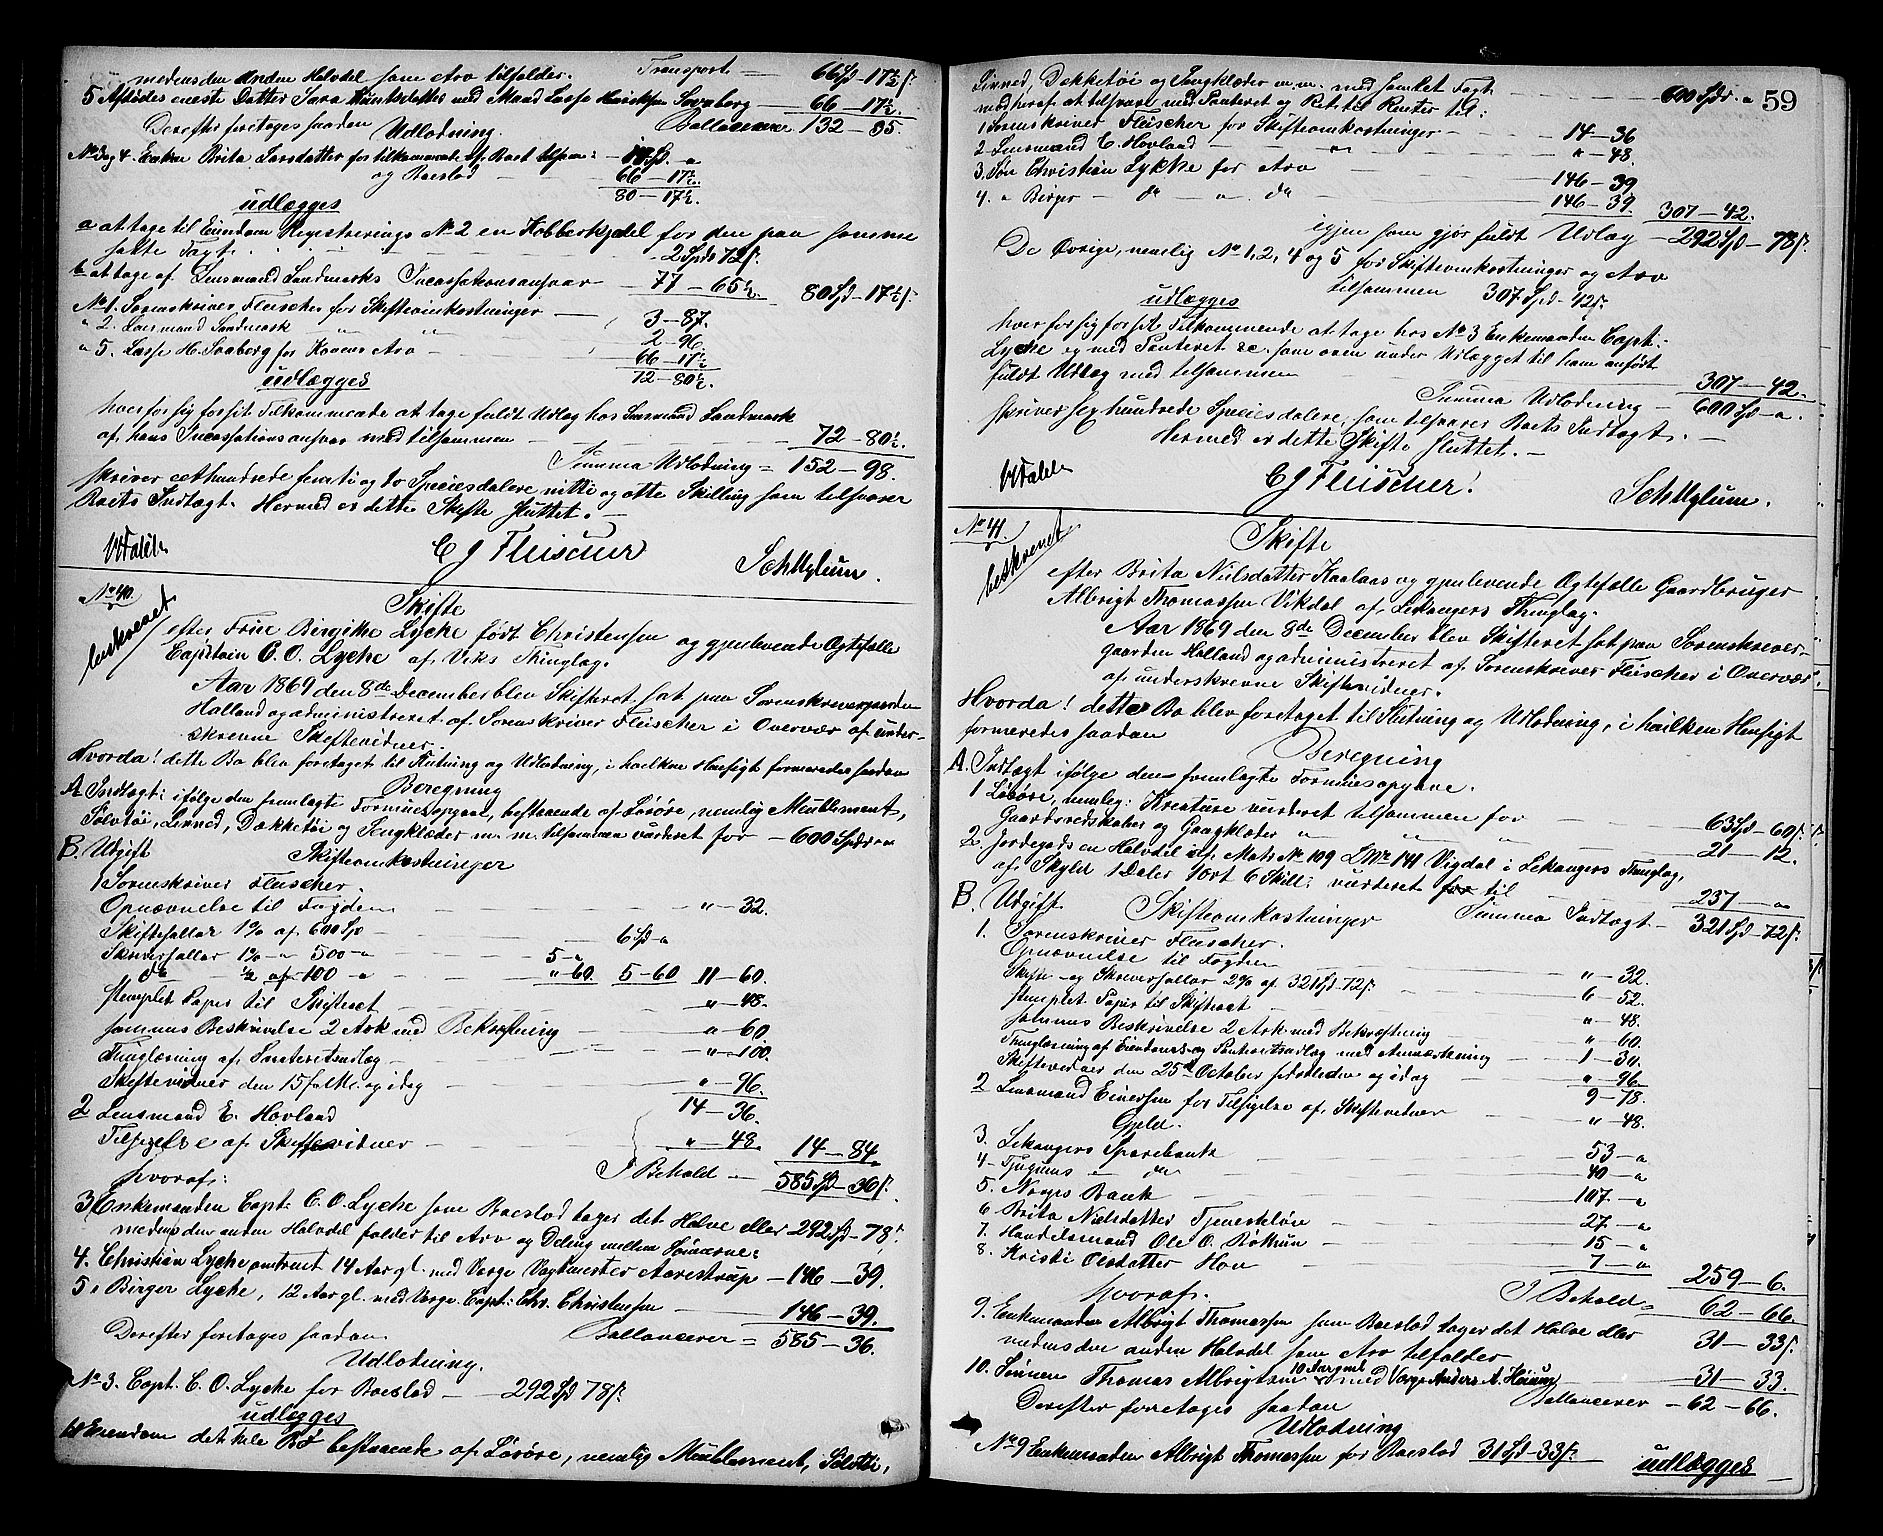 medens den anden Halvdel som Arv tilfalder. Transport — 66Spd-17½ s.
5 Afdødes eneste Datter Sara Knutsdatter med Mand Lasse Henriksen Svaberg — 66-17½.
Derefter foretages saadan Ballancerer 132-35.
Udlodning.
No 3 og 4. Enken Brita Larsdatter for tilkommende af Boet tilsam:
og Boeslod — 66-17½.
80-17½.
udlægges
a at tage til Eiendom Registrerings No 2 en Kobberkjedel for den paa samme
satte Taxt — 2Spd 72s.
b at tage af Lensmand Landmarks Incassationsansvar — 77-65½. 80Spd-17½s.
No 1. Sorenskriver Fleischer for Skifteomkostninger — 3-87.
" 2. Lensmand Landmark " " 2-96.
" 5. Lasse H. Svaberg for Konens Arv — 66-17½.
72-80½.
udlægges
hver for sig for sit Tilkommende at tage fuldt Udlæg hos Lensmand Landmark
af hans Incassationsansvar med tilsammen — 72-80½.
Summa Udlodning = 152-98.
skriver eethundrede femti og to Speciesdalere nitti og otte Skilling som tilsvarer
Boets Indtægt. Hermed er dette Skifte sluttet. —
CJ Fleischer
No 40.
beskrevet
Skifte
efter Frue Birgithe Lycke født Christensen og gjenlevende Ægtefælle
Capitain C. O. Lycke af Viks Thinglag.
Aar 1869 den 8de December blev Skifteret sat paa Sorenskrivergaarden
Holland og administreret af Sorenskriver Fleischer i Overvær af under-
skrevne Skiftevidner.
Hvorda! dette Bo blev foretaget til Slutning og Udlodning, i hvilken Hensigt formeredes saadan
Beregning
A Indtægt: ifølge den fremlagte Formuesopgave, bestaaende af Løsøre, nemlig Meublement,
Sølvtøi, Linned, Dækketøi og Sengklæder m. m. tilsammen vurderet for — 600Spd — "
B. Udgift
Skifteomkostninger
1 Sorenskriver Fleischer.
Opnævnelse til Fogden — " - 32.
Skiftesallar 1% af 600Spd — 6Spd-"
Skriversallar 1% - " 500 - " 5-"
do - ½ af 100 - " " - 60. 5-60 11-60.
stemplet Papir til Skifteret — " - 48.
sammes Beskrivelse 2 Ark med Bekræftning — " - 60
Thinglæsning af Panteretsudlæg — " - 100.
Skiftevidner den 15 f. M. og idag — " - 96.
14-36.
2 Lensmand E. Hovland
Tilsigelse af Skiftevidner — " - 48 14-84
I Behold — 585Spd-36s.
hvoraf:
3 Enkemanden Capt. C. O. Lycke som Boeslod tager det Halve eller 292Spd-78s.
medens den anden Halvdel falder til Arv og Deling mellem Sønnerne:
4. Christian Lycke, omtrent 14 Aar gl. med Værge Vagtmester Aarestrup — 146-39.
5 " Birger Lycke, 12 Aar gl. med Værge Capt: Chr. Christensen — 146-39.
Derefter foretages saadan Ballancerer = 585-36.
Udlodning.
No 3. Capt. C. O. Lycke for Boeslod — 292Spd 78s.
udlægges
til Eiendom det hele Bo bestaaende af Løsøre, nemlig Meublement, Sølvtøi,
59
Linned, Dækketøi og Sengklæder m. m. med samlet Taxt — 600Spd. "
med heraf at tilsvare med Panteret og Ret til Renter til:
1 Sorenskriver Fleischer for Skifteomkostninger — 14-36
2 Lensmand E. Hovland — " — " - 48.
3. Søn Christian Lykke for Arv — 146-39
4. " Birger — do — " . do — 146-39. 307-42.
igjen som gjør fuldt Udlæg — 292Spd-78s.
De Øvrige, nemlig No 1, 2, 4 og 5 for Skifteomkostninger og Arv
tilsammen 307Spd-42s.
udlægges
hver for sig for sit Tilkommende at tage hos No 3 Enkemanden Capt.
Lycke og med Panteret &c. som oven under Udlægget til ham anført
fuldt Udlæg med tilsammen — 307-42.
Summa Udlodning — 600Spd-".
skriver sexhundrede Speciesdalere, som tilsvarer Boets Indtægt. —
Hermed er dette Skifte sluttet. —
CJ Fleischer.
No 41.
beskrevet
Skifte
efter Brita Nielsdatter Kaalaas og gjenlevende Ægtefælle Gaardbruger
Albrigt Thomassen Vikdal af Lekangers Thinglag.
Aar 1869 den 8de December blev Skifteret sat paa Sorenskriver-
gaarden Holland og administreret af Sorenskriver Fleischer i Overvær
af underskrevne Skiftevidner.
Hvorda! dette Bo blev foretaget til Slutning og Udlodning, i hvilken Hensigt
formeredes saadan
Beregning
A. Indtægt ifølge den fremlagte Formuesopgave.
1 Løsøre, nemlig: Kreature vurderet tilsammen for — 63Spd-60s.
Gaardsredskaber og Gangklæder " " " — 21-12.
2. Jordegods en Halvdel af Matr No 109 LNr 141 Vigdal i Lekangers Thinglag,
af Skyld 1 Daler 1 ort 6 Skill: vurderet for til — 237-"
Summa Indtægt — 321Spd-72s.
B. Udgift
Skifteomkostninger
1. Sorenskriver Fleischer.
Opnævnelse til Fogden — " - 32.
Skifte- og Skriversallar 2% af 321Spd-72s. — 6-52.
stemplet Papir til Skifteret — " - 48.
sammes Beskrivelse 2 Ark med Bekræftning — " - 60.
Thinglæsning af Eiendoms- og Panteretsudlæg med Anmærkning — 1-30.
Skiftevidner den 25de October sidstleden og idag — " - 96
9-78.
2 Lensmand Einersen for Tilsigelse af Skiftevidner — " - 48.
Gjeld.
3. Lekangers Sparebank — 53-"
4- Tjugums — do — 40-"
5. Norges Bank — 107-"
6 Brita Nielsdatter Tjenesteløn — 27-"
7. Handelsmand Ole O. Bøthun — 15-"
8. Kristi Olsdatter Hov — 7-" 259-6.
I Behold = 62-66.
hvoraf.
9. Enkemanden Albrigt Thomassen som Boeslod tager det Halve eller 31-33s.
medens den anden Halvdel som Arv tilfalder
10. Sønnen Thomas Albrigtsen 10 Aar gml med Værge Anders A. — 31-33.
Derefter foretages saadan Ballancerer — 62-66.
Udlodning
No 9 Enkemanden Albrigt Thomassen for Boeslod 31Spd-33s.
udlægges